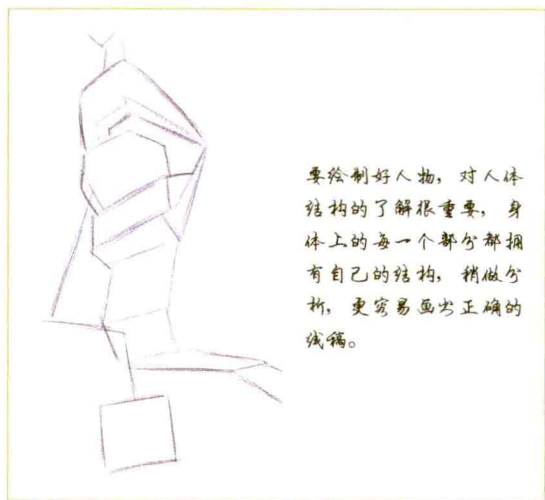 要绘制好人物，对人体
结构的了解很重要，身
体上的每一个部分都拥
有自己的结构，稍做分
析，更容易画出正确的
线稿。